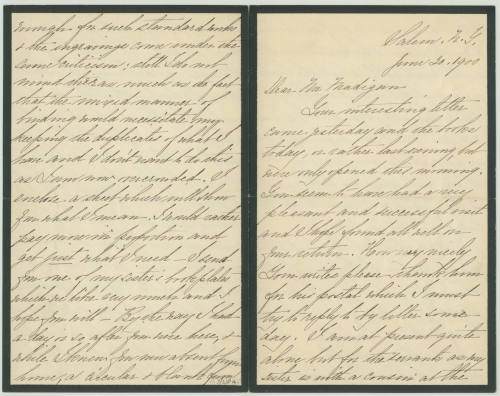 Salem. N.Y.
June 20. 1900
Dear Mr Madigan
Your interesting letter
came yesterday and the books
today, or rather last evening, but
were only opened this morning.
You seem to have had a very
pleasant and successful visit
and I hope found all well on
your return. How very nicely
Tom writes please thank him
for his postal which I must
try to reply to by letter some
day. I am at present quite
alone but for the servants as my
sister is with a cousin at the
enough for such standard works
& the engravings come under the
same criticism; still I do not
mind this as much as the fact
that the mixed manner of
binding would necessitate my
keeping the duplicates of what I
have and I don't want to do this
as I am now overcrowded. I
enclose a sheet which will show
you what I mean. I would rather
pay more in proportion and
get just what I need — I send
you one of my sister's book plates
which we like very much and I
hope you will — By the way I had
a day or so after you were here, &
while I knew you were absent from
home, a circular & blank from